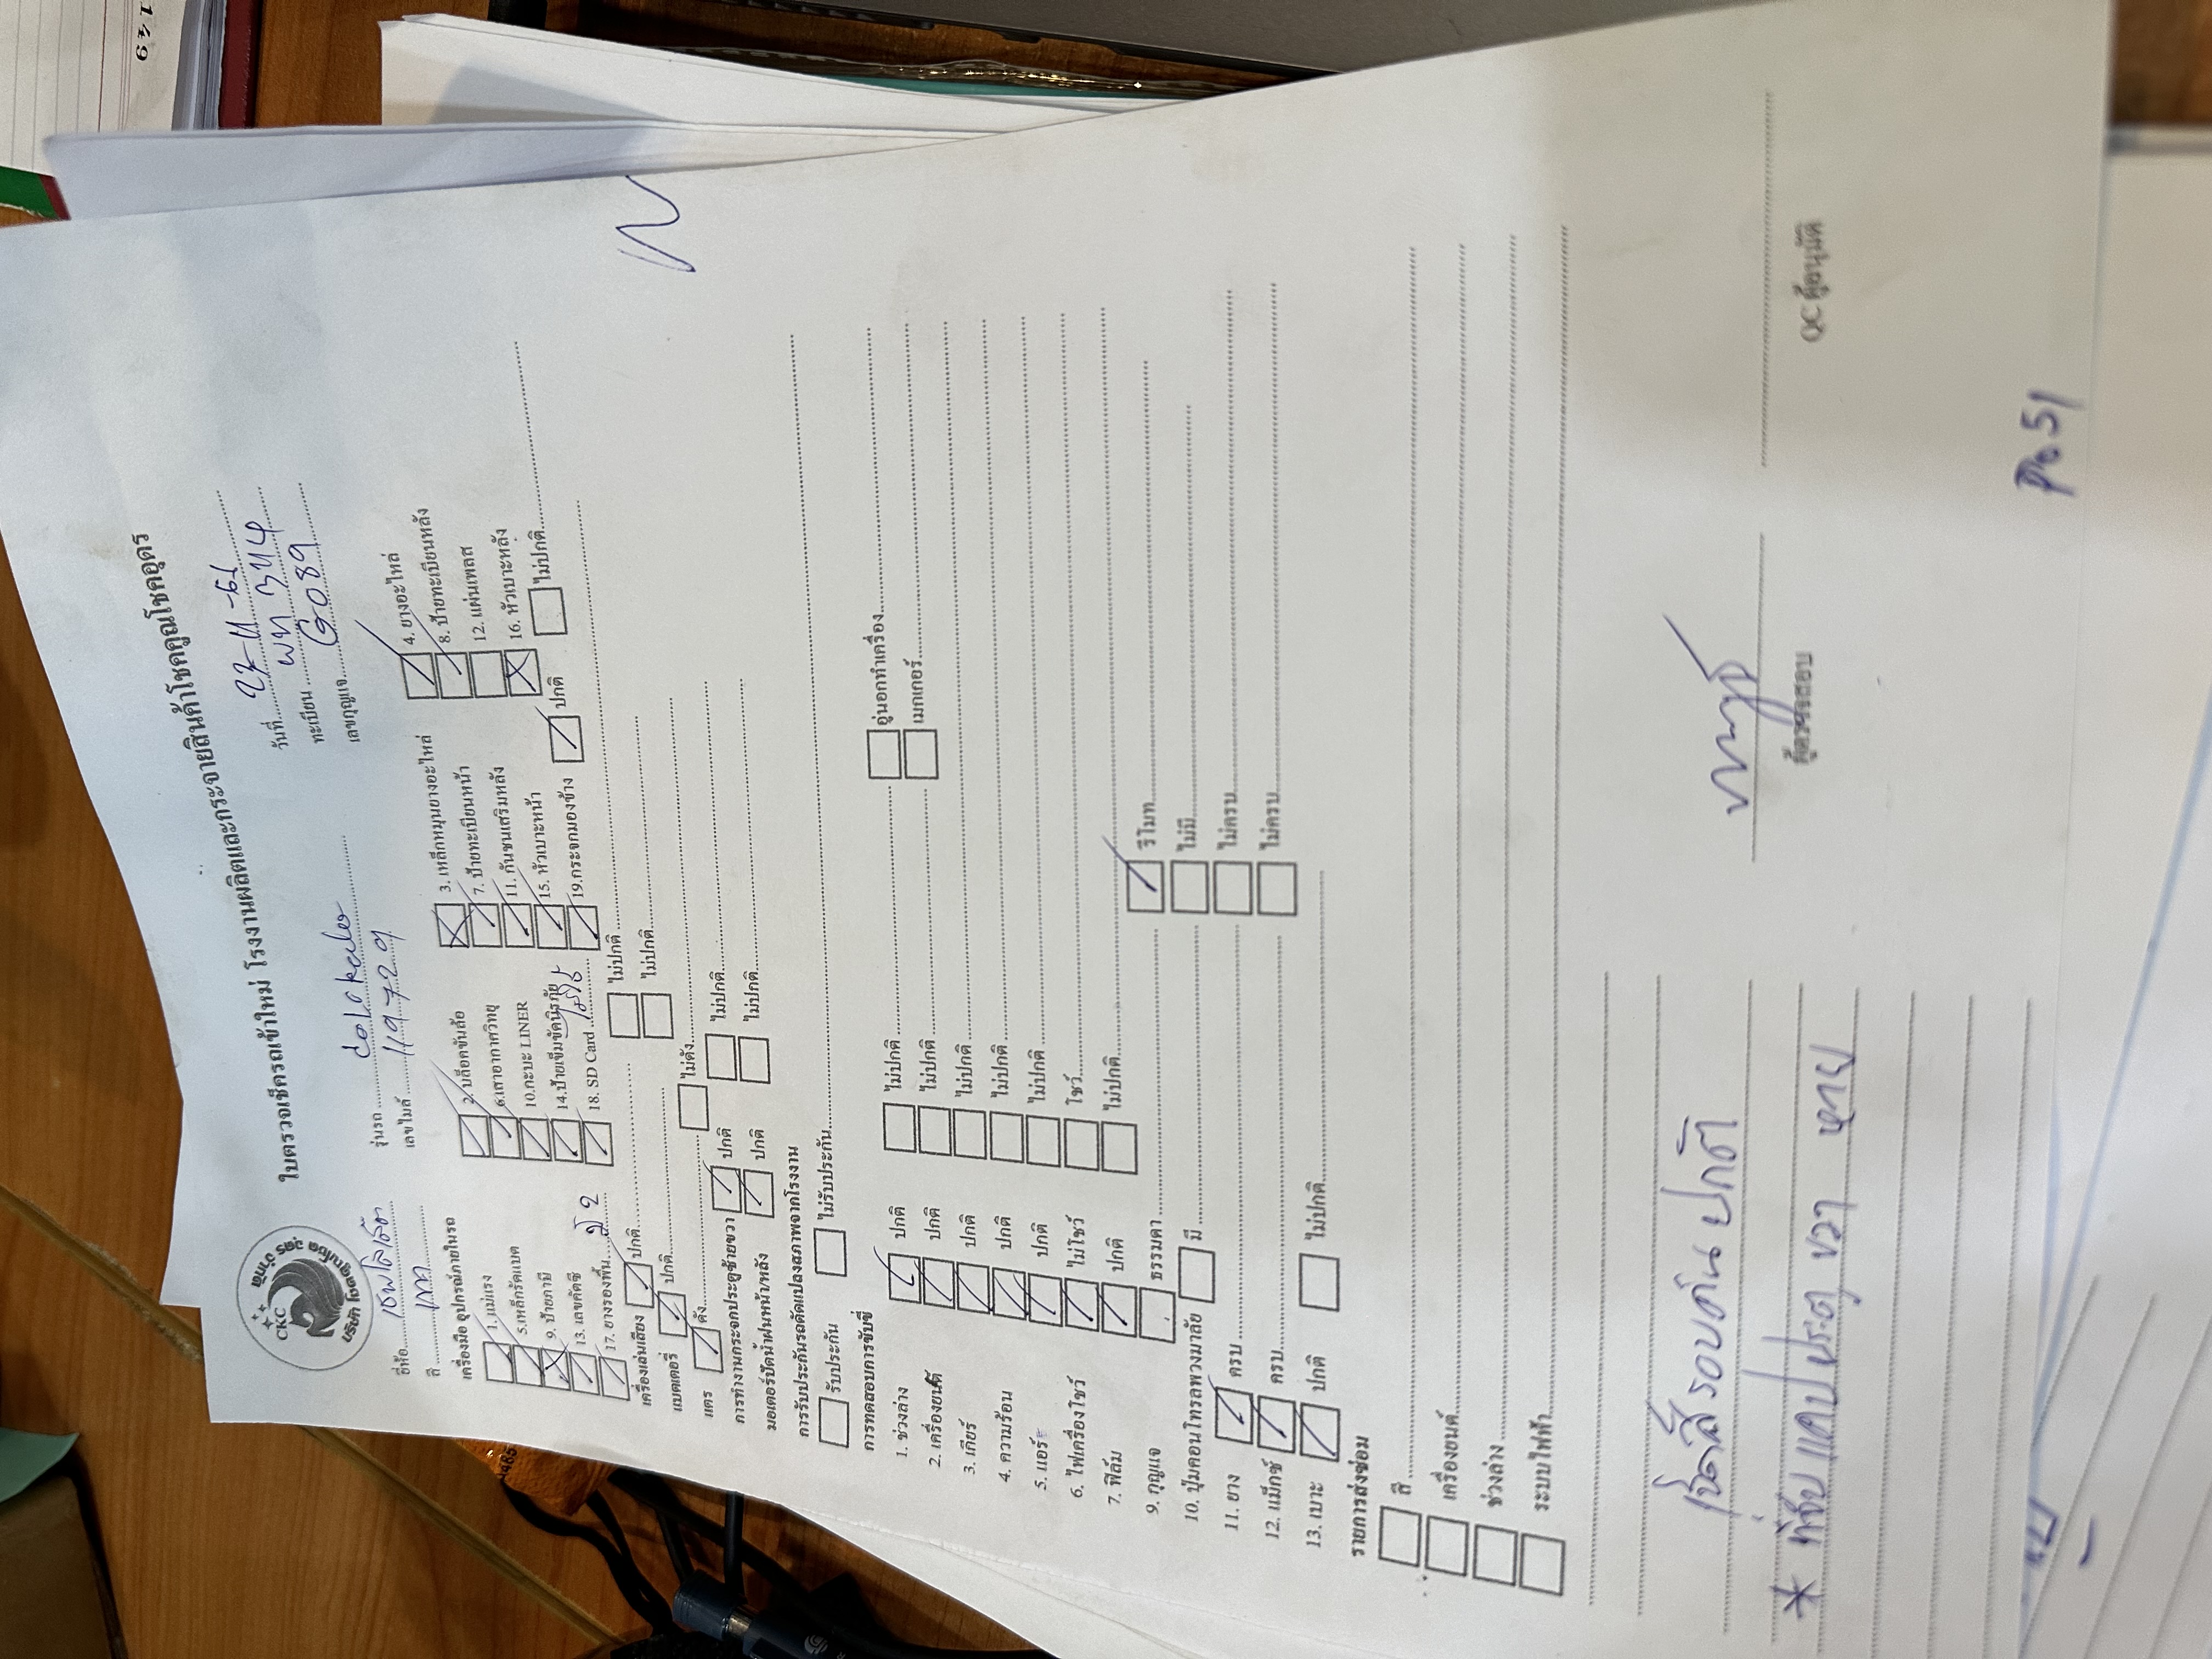 ใบตรวจเช็ครถเข้าใหม่ โรงงานผลิตและกระจายสินค้าโชคคูณโชคอุดร
CKC
บริษัท โชคคูณโชค อุดร จำกัด
วันที่
ยี่ห้อ เชฟโรเลต รุ่นรถ colorado ทะเบียน
สี เทา เลขไมล์ 119729 เลขกุญแจ G089
เครื่องมือ อุปกรณ์ภายในรถ
1. แม่แรง 2. บล็อคขันล้อ 3. เหล็กหมุนยางอะไหล่ 4. ยางอะไหล่
5. เหล็กรัดแบต 6. เสาอากาศวิทยุ 7. ป้ายทะเบียนหน้า 8. ป้ายทะเบียนหลัง
9. ป้ายภาษี 10. กะบะ LINER 11. กันชนเสริมหลัง 12. แผ่นเพลส
13. เลขคัดซี 14. ป้ายเข็มขัดนิรภัย 15. หัวเบาะหน้า 16. หัวเบาะหลัง
17. ยางรองพื้น 18. SD Card 19. กระจกมองข้าง ปกติ ไม่ปกติ
เครื่องเล่นเสียง ปกติ ไม่ปกติ
แบตเตอรี่ ปกติ ไม่ปกติ
แตร ดัง ไม่ดัง
การทำงานกระจกประตูซ้ายขวา ปกติ ไม่ปกติ
มอเตอร์ปัดน้ำฝนหน้า/หลัง ปกติ ไม่ปกติ
การรับประกันรถดัดแปลงสภาพจากโรงงาน
รับประกัน ไม่รับประกัน
การทดสอบการขับขี่
1. ช่วงล่าง ปกติ ไม่ปกติ อู่นอกทำเครื่อง
2. เครื่องยนต์ ปกติ ไม่ปกติ เมกเกอร์
3. เกียร์ ปกติ ไม่ปกติ
4. ความร้อน ปกติ ไม่ปกติ
5. แอร์ ปกติ ไม่ปกติ
6. ไฟเครื่องโชว์ ไม่โชว์ โชว์
7. ฟิล์ม ปกติ ไม่ปกติ
9. กุญแจ ธรรมดา รีโมท
10. ปุ่มคอนโทรลพวงมาลัย มี ไม่มี
11. ยาง ครบ ไม่ครบ
12. แม็กซ์ ครบ ไม่ครบ
13. เบาะ ปกติ ไม่ปกติ
รายการส่งซ่อม
สี
เครื่องยนต์
ช่วงล่าง
ระบบไฟฟ้า
เช็คสีรอบคัน ปกติ
ประตู ขวา หาย
ผู้ตรวจสอบ QC ผู้อนุมัติ